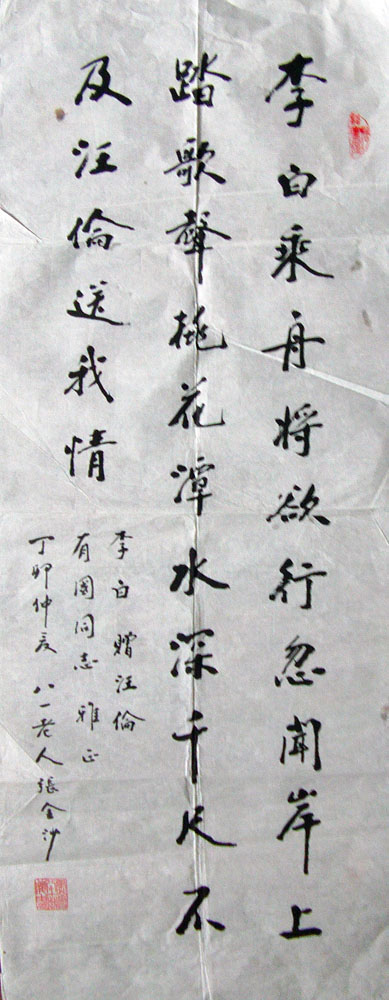 李白乘舟将欲行忽闻岸上
踏歌聲桃花潭水深千尺不
及汪倫送我情
李白赠汪倫
有国同志雅正
丁卯仲夏八一老人張金沙